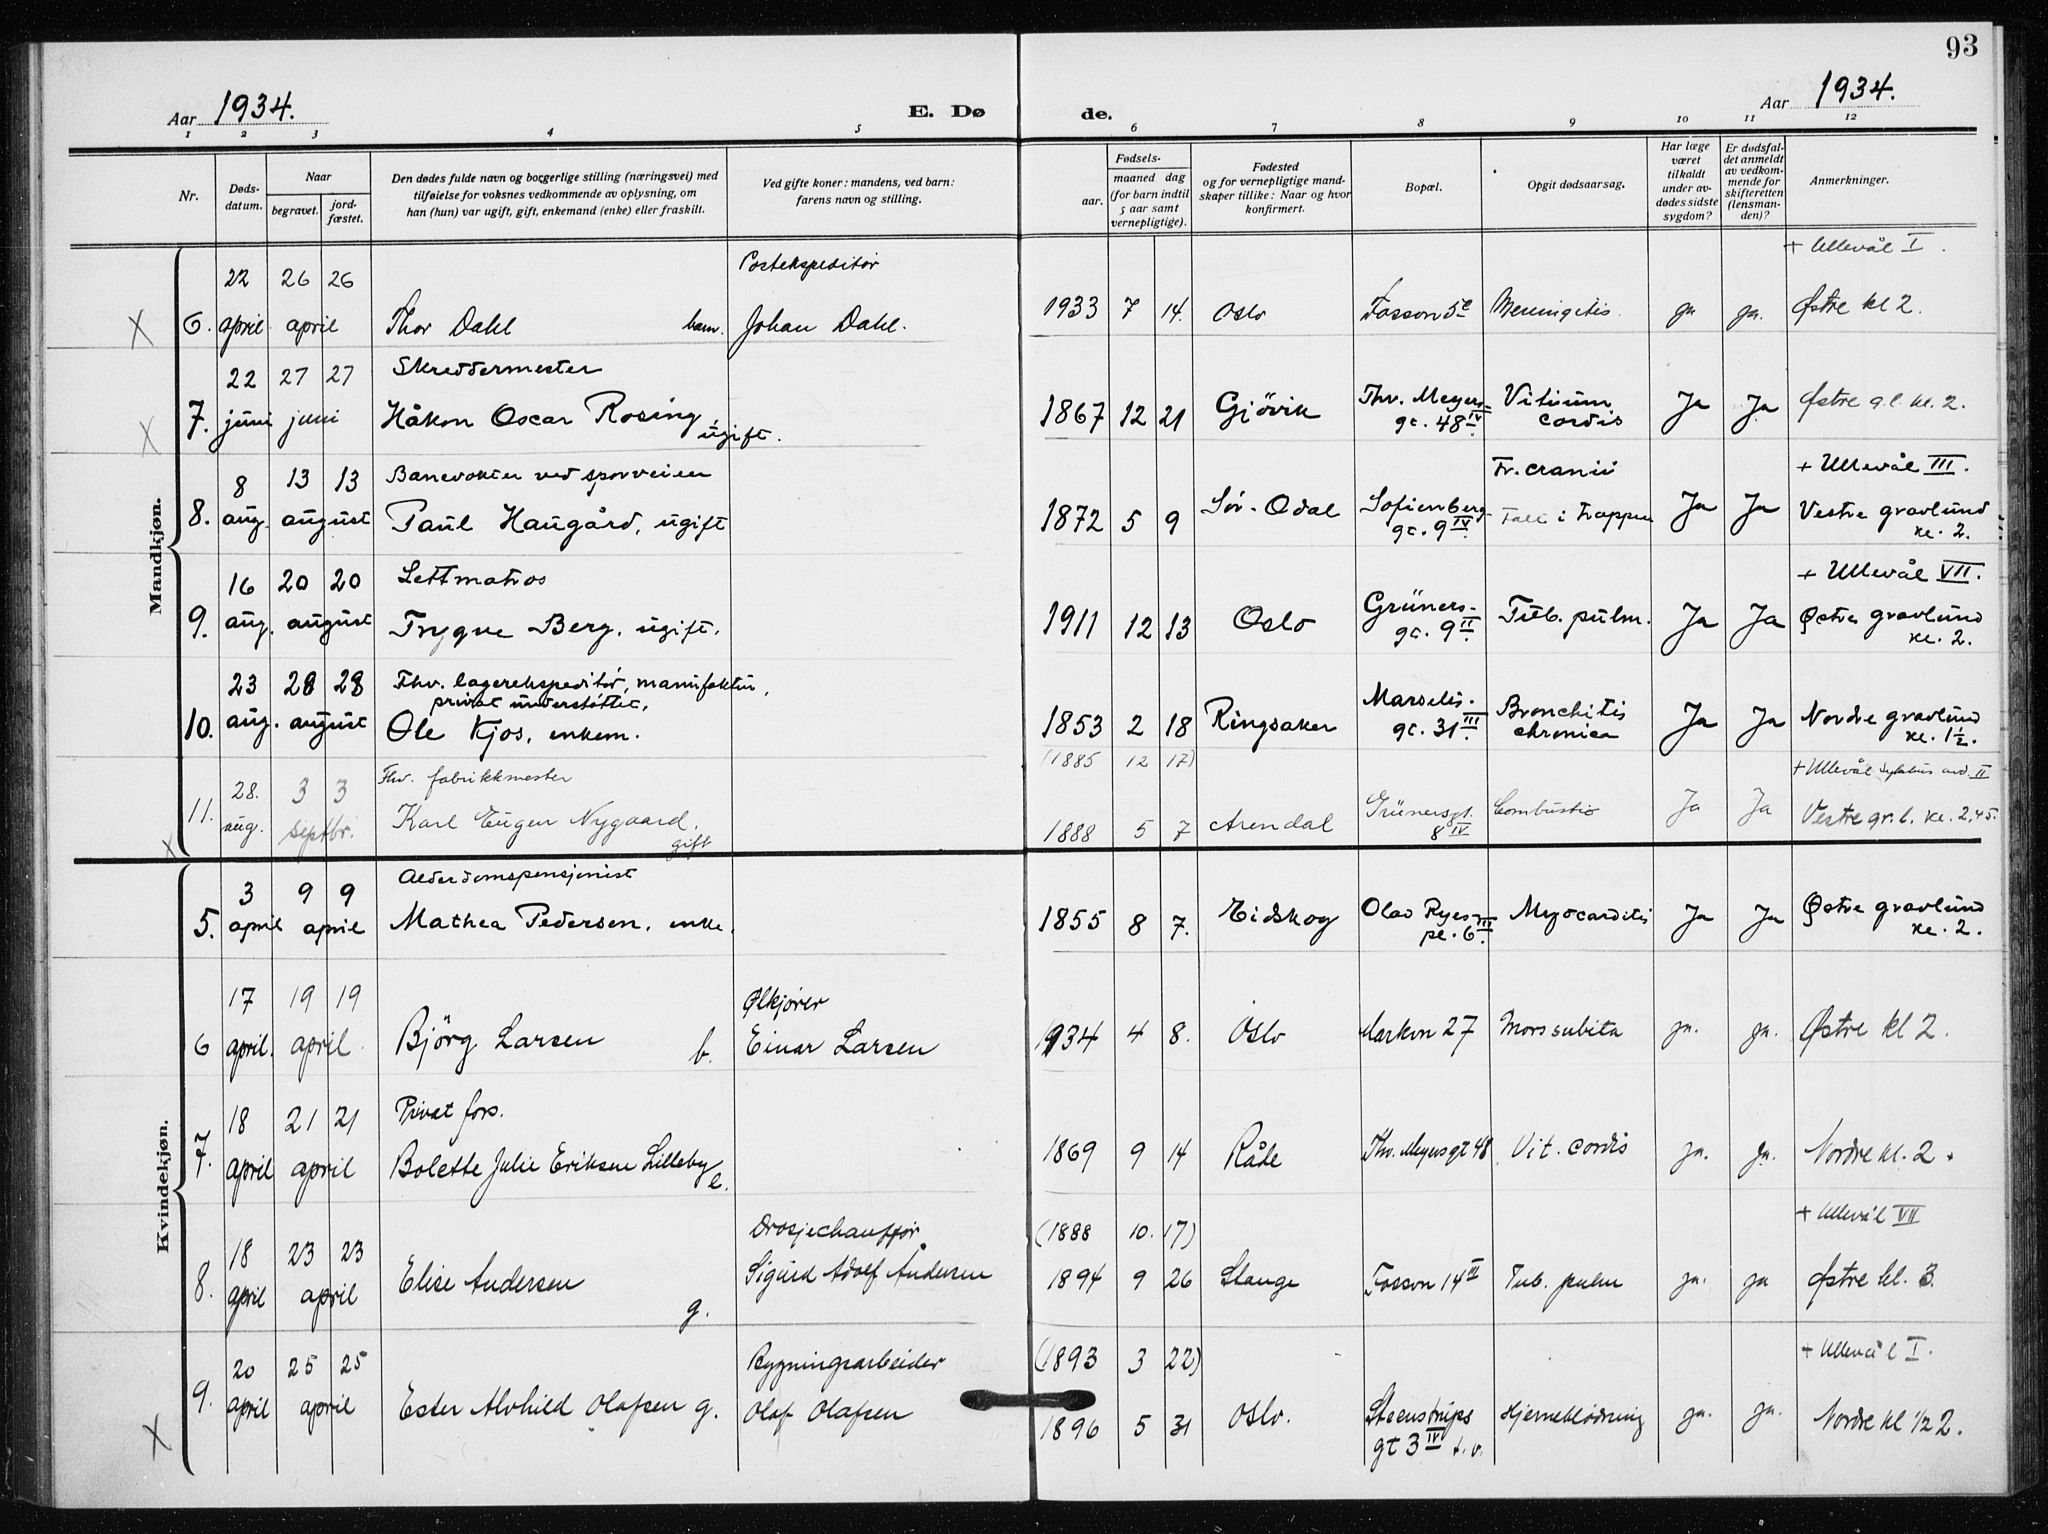 93
Aar 1934. E. Dø de. Aar 1934.
1 2 3 4 5 6 7 8 9 10 11 12
Nr. Døds-datum. Naar begravet. jord-fæstet. Den dødes fulde navn og borgerlige stilling (næringsvei) med tilføielse for voksnes vedkommende av oplysning, om han (hun) var ugift, gift, enkemand (enke) eller fraskilt. Ved gifte koner: mandens, ved barn: farens navn og stilling. Fødsels- aar. maaned dag (for barn indtil 5 aar samt vernepligtige). Fødested og for vernepligtige mand-skaper tillike: Naar og hvor konfirmert. Bopæl. Opgit dødsaarsag. Har læge været tilkaldt under av-dødes sidste sygdom? Er dødsfal-det anmeldt av vedkom-mende for skifteretten (lensman-den)? Anmerkninger.
Mandkjøn.
22 26 26 Postekspeditør + Ullevål I.
X 6. april april Thor Dahl barn. Johan Dahl. 1933 7 14. Oslo Fossvn 5c Meningitis. ja ja. Østre kl 2.
22 27 27 Skreddermester
X 7. juni juni Håkon Oscar Rosing, ugift. 1867 12 21 Gjövik Thv. Meyers gt. 48 IV. Vitium cordis Ja Ja Østre g.l. kl. 2.
8 13 13 Banevokter ved sporveien Fr. cranii + Ullevål III.
8. aug. august Paul Haugård, ugift 1872 5 9 Sör-Odal Sofienberg gt. 9 IV. Fall i trappen Ja Ja Vestre gravlund kl. 2.
16 20 20 Lettmatros + Ullevål VII.
9. aug. august Trygve Berg, ugift. 1911 12 13 Oslo Grüners- gt. 9 II. Tub. pulm. Ja Ja Østre gravlund kl. 2.
23 28 28 Fhv. lagerekspeditør, manufaktur, privat understøttet,
10. aug. august Ole Kjos, enkem. 1853 2 18 Ringsaker Marselis. gt. 31 III. Bronchitis chronica Ja Ja Nordre gravlund kl. 1½.
28. 3 3 Fhv. fabrikkmester (1885 12 17) + Ullevål II
X 11. aug. septbr. Karl Eugen Nygaard, gift 1888 5 7 Arendal Grünersgt. 8 IV Combustio Ja Ja Vestre gr.l. kl. 2,45.
Kvindekjøn.
3 9 9 Alderdomspensjonist
5. april april Mathea Pedersen, enke. 1855 8 7. Eidskog Olav Ryes pl. 6 III. Myocarditis Ja Ja Østre gravlund kl. 2.
17 19 19 Ølkjører
6 april. april. Björg Larsen b. Einar Larsen 1934 4 8. Oslo Markvn 27 Mors subita ja. ja. Østre kl 2.
18 21 21 Privat fors.
7. april april Bolette Julie Eriksen Lilleby e. 1869 9 14 Råde Thv. Meyersgt 48 Vit. cordis ja. ja. Nordre kl. 2.
18 23 23 Drosjechauffør (1888 10. 17) + Ullevål VII
8. april april Elise Andersen g. Sigurd Adolf Andersen 1894 9 26 Stange Fossvn 14 III Tub. pulm ja. ja Østre kl. 3.
20 25 25 Bygningsarbeider (1893 3 22) + Ullevål I.
X 9. april april Ester Alvhild Olafsen g. Olaf Olafsen 1896 5 31 Oslo. Steenstrups gt 3 IV t.v. Hjerneblödning ja. ja. Nordre kl ½ 2.